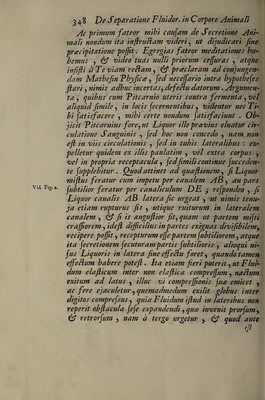 348 De Separatione Fluidor. in Corpore Animali
Ac primum fateor mihi causam de Secretione Ani-
mali nondum ita instructam videri, ut dijudicari sine
præcipitatione possit. Egregias fateor meditationes ha-
bemus, & video tuas nulli priorum cessuras, atque
insisti à Te viam rectam, & præclaram ad conjungen-
dam Mathesin Physicæ, sed necessario intra hypotheses
stari, nimis adhuc incertas, defectu datorum. Argumen-
ta, quibus cum Pitcarnio uteris contra fermenta, vel
aliquid simile, in locis secernentibus, videntur nec Ti-
bi satisfacere, mihi certe nondum satisfaciunt. Ob-
jicit Pitcarnius fore, ut Liquor ille pravius eluatur cir-
culatione Sanguinis, sed hoc non concedo, nam non
est in viis circulationis, sed in tubis lateralibus: ex-
pelletur quidem ex illis paulatim, vel extra corpus,
vel in propria receptacula, sed simili continue succeden-
te supplebitur. Quod attinet ad quæstionem, si Liquor
mistus feratur cum impetu per canalem AB, an pars
Vid. Fig. 2. subtilior feratur per canaliculum DE; respondeo, si
Liquor canalis AB latera sic urgeat, ut nimis tenu-
ia etiam rupturus sit, utique ruiturum in lateralem
canalem, & si is angustior sit, quam ut partem misti
crassiorem, idest difficilius in partes exiguas divisibilem,
recipere possit, recepturum esse partem subtiliorem, atque
ita secretionem secuturam partis subtilioris, alioqui ni-
sus Liquoris in latera sine effectu foret, quando tamen
effectum habere potest. Ita etiam fieri poterit, ut Flui-
dum elasticum inter non elastica compressum, nactum
exitum ad latus, illuc vi compressionis suæ emicet,
ac fere ejaculetur, quemadmodum exilit globus inter
digitos compressus, quia Fluidum istud in lateribus non
reperit obstacula sese expandendi, quæ invenit prorsum,
& retrorsum, nam à tergo urgetur, & quod ante
est